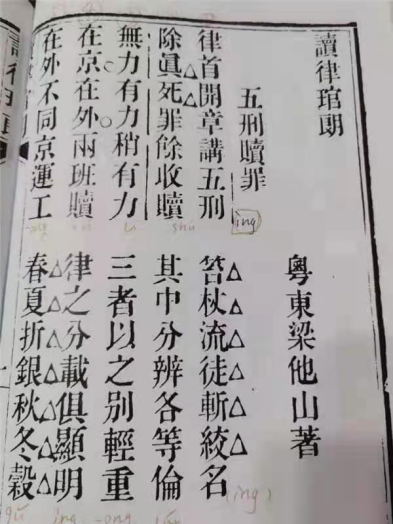 讀律琯朗
粵東梁他山著
五刑贖罪
律首開章講五刑 笞杖流徒斬絞名
除眞死罪餘收贖 其中分辨各等倫
無力有力稍有力 三者以之別輕重
在京在外兩班贖 律之分載俱顯明
在外不同京運工 春夏折銀秋冬穀
ing
(ing)